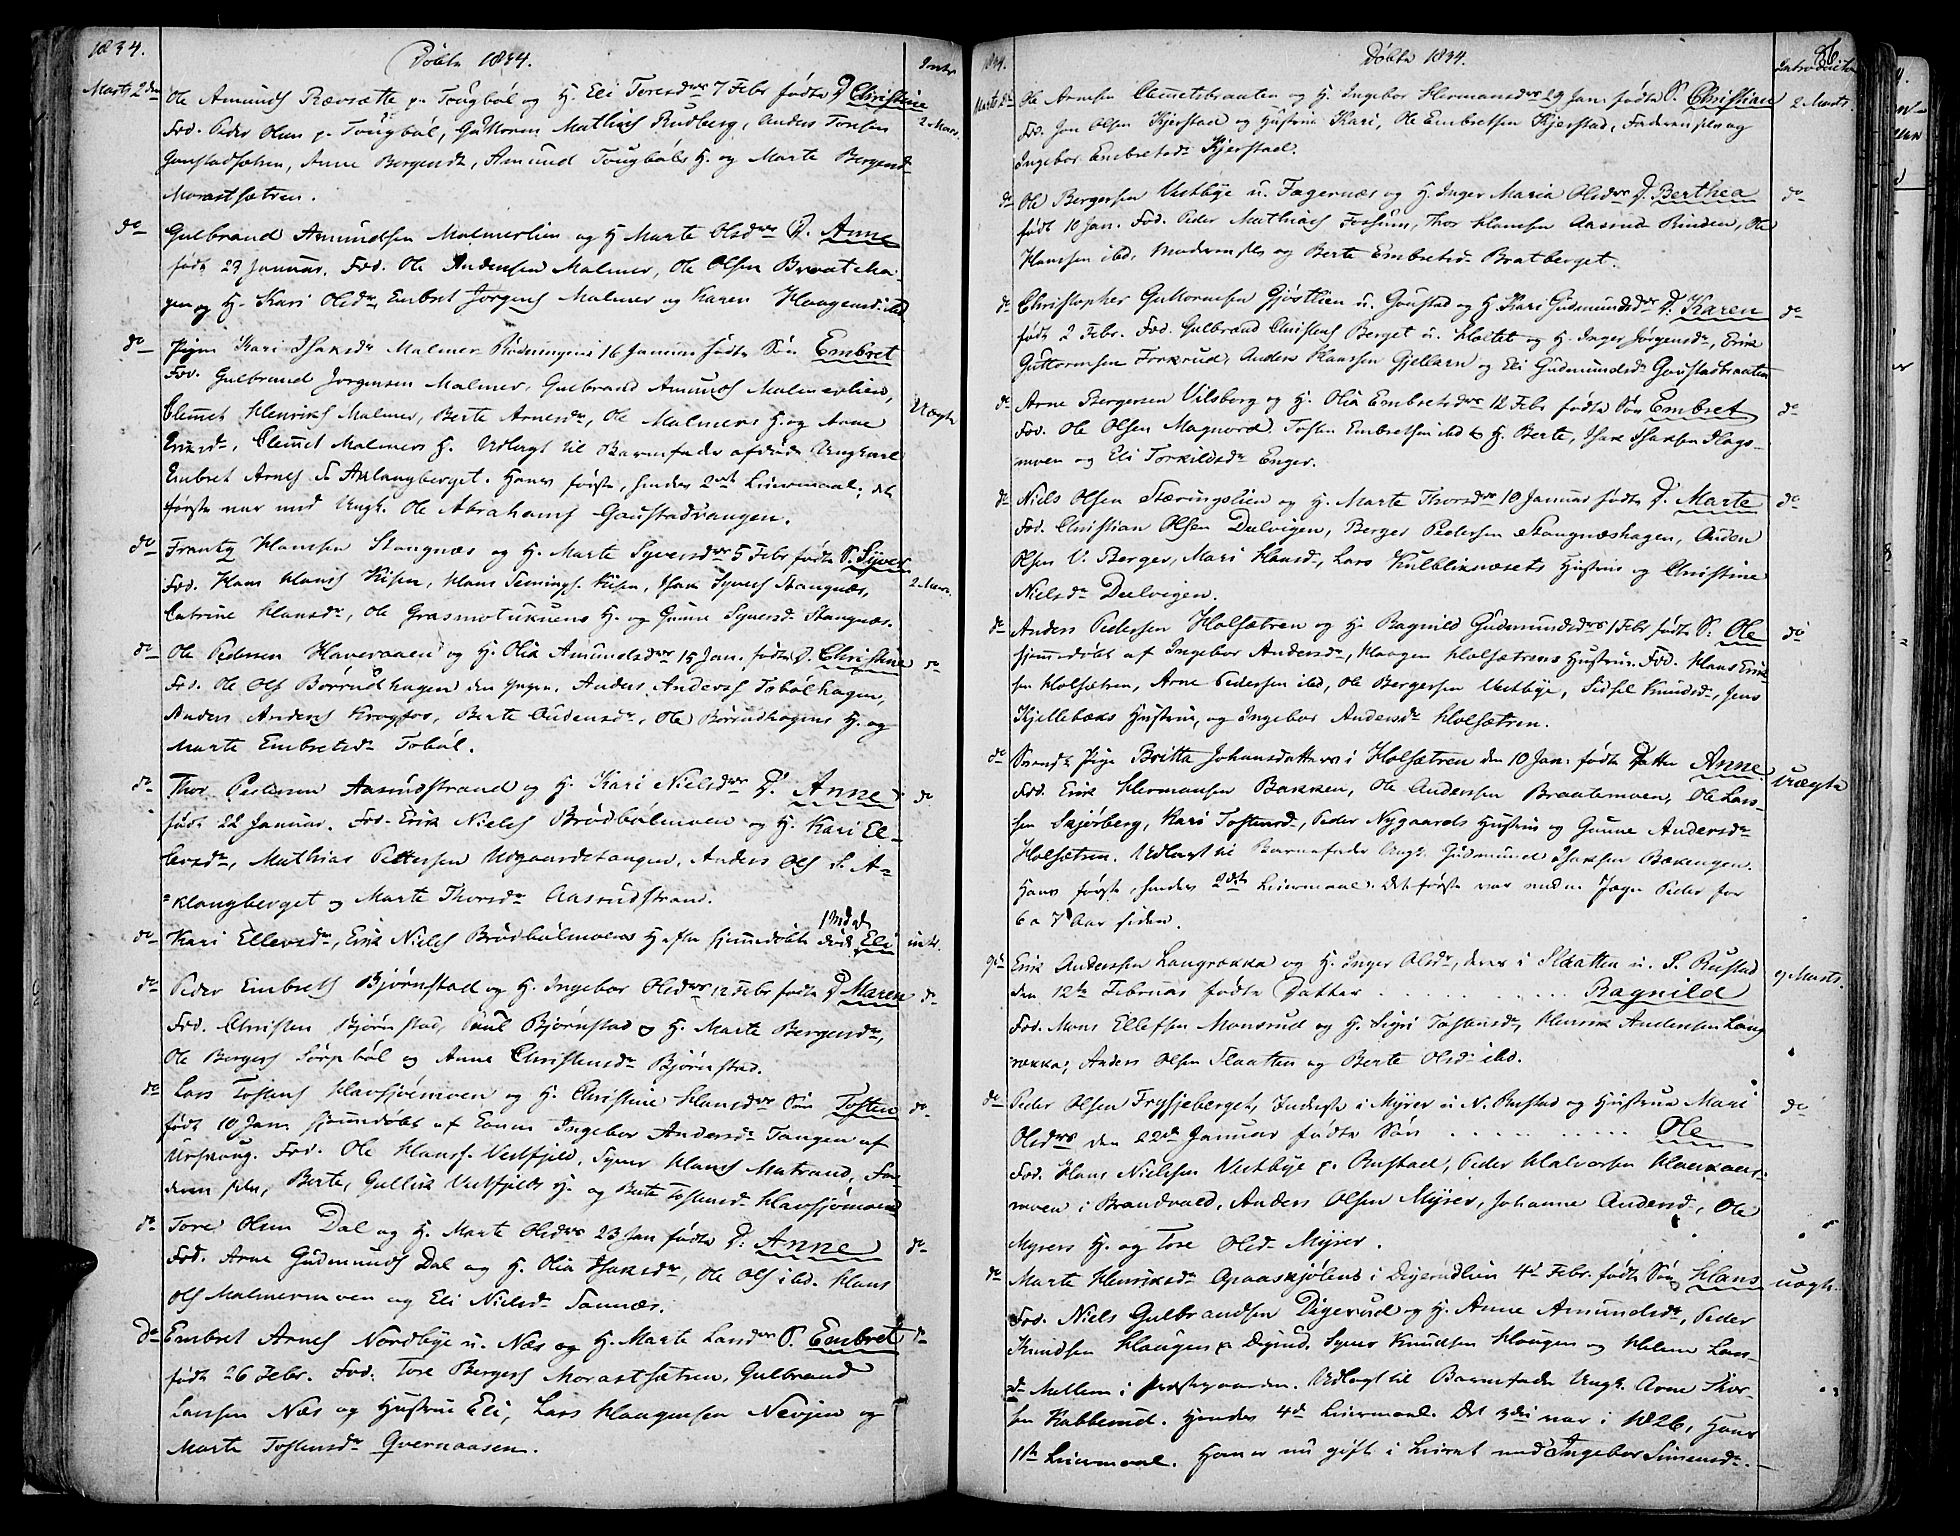 1834.
Døbte 1834.
Marts 2den Ole Amunds. Rævsætte p. Tougbøl og H. Eli Toresdr 7 Febr fødte D. Christine
Fad. Peder Olsen p. Tougbøl, Guttorm Mathias Rudberg, Anders Toresen 2 Mars.
Gaustadsætren, Anne Bergersdr, Amund Tougbøls H. og Marte Bergersdr
Morastsætren.
do Gulbrand Amundsen Malmerlien og H. Marte Olsdr D. Anne
født 27 Januar. Fad. Ole Andersen Malmer, Ole Olsen Braateha-
gen og H. Kari Olsdr Embret Jørgens. Malmer og Karen Haagensdr ibd.
do Pigen Kari Isaksdr Malmer 16 Januar fødte Søn Embret
Fad. Gulbrand Jørgensen Malmer, Gulbrand Amunds. Malmerlien,
Clemet Henriks. Malmer, Berte Arnesdr, Ole Malmers H. og Anne Uægte
Clemet Malmers H. Udlagt til Barnefader afdøde Ungkarl
Embret Arnes. S. Aklangberget. Hans første, hendes 2det Leiermaal; det
første var med Ungk. Ole Abrahams. Gaustadvangen.
do Frantz Hansen Stangnæs og H. Marte Syversdr 5 Febr fødte S. Syver
Fad. Hans Hans. Kisen, Hans Kisen, Isak Syvers. Stangnæs, 2 Mars.
Catrine Hansdr, Ole Grasmotukuens H. og Gunne Syversdr Stangnæs.
do Ole Pedersen Haveraaen og H. Olia Amundsdr 15 Jan. fødte D. Christine do
Fad. Ole Ols. Børrudhagen den yngre, Anders Anders. Tobølhagen,
Anders Anders. Krogfos, Berte Audensdr, Ole Børrudhagens H. og
Marte Embretsdr Tobøl.
do Thor Pedersen Aasrudstrand og H. Kari Nielsdr D. Anne do
født 22 Januar. Fad. Erik Niels. Brødbølmoen og H. Kari El-
lersdr, Mathias Pettersen Udgaardstangen, Anders Ols. S. A-
klangberget og Marte Thorsdr Aasrudstrand.
do Kari Ellevsdr, Erik Niels. Brødbølmoens H. efter hjemmedøbt død Eli intr.
do Peder Embrets. Bjørnstad og H. Ingebor Olsdr 12 Febr fødte D. Maren do
Fad. Christen Bjørnstad, Paul Bjørnstad og H. Marte Bergersdr,
Ole Bergers. Sørpebøl og Anne Christensdr Bjørnstad.
do Lars Tostens. Havsjømoen og H. Christine Hansdr Søn Tosten do
født 10 Jan. hjemmedøbt af Ingebor Andersdr Tangen af
Fad. Ole Hans. Vestfjeld, Syver Hans. Matrand, Fa-
deren selv, Berte, Gullik Vestfjelds H. og Berte Tostensdr Havsjømoen
do Tore Olsen Dal og H. Marte Olsdr 23 Jan fødte D. Anne do
Fad. Arne Gudmunds. Dal og H. Olia Isaksdr, Ole Ols. ibd. Hans
Ols. Malmermoen og Eli Nielsdr Sannæs.
do Embret Arnes. Nordbye u. Næs og H. Marte Larsdr S. Embret do
født 26 Febr. Fad. Tore Bergers. Morastsætren, Gulbrand
Larsen Næs og Hustrue Eli, Lars Haagensen Nevjen og
Marte Tostensdr Qvernaasen.
1834. Døbte 1834. 86
Introducerte
Marts do Ole Arnesen Clemetsbraaten og H. Ingebor Hermansdr 29 Jan. fødte S. Christian 2 Marts.
Fad. Jon Olsen Kjerstad og Hustrue Kari, Ole Embretsen Kjerstad, Faderen selv og
Ingebor Embretsdr Kjerstad.
do Ole Bergersen Vestbye u. Fagernæs og H. Inger Maria Olsdr D. Berthea do
født 10 Jan. Fad. Peder Mathias. Fossum, Thor Hansen Aasrud Rinden, Ole
Hansen ibd, Moderen selv og Berte Embretsdr Bratberget.
do Christopher Guttormsen Gjøstlien u. Goustad og H. Kari Gudmundsdr D. Karen do
født 2 Febr. Fad. Gulbrand Christens. Berget u. Holtet og H. Inger Jørgensdr, Erik
Guttormsen Forkrud, Anders Hanssen Gjellarn og Eli Gudmundsdr Goustadbraaten
do Arne Bergersen Vilsborg og H. Olia Embretsdr 12 Febr fødte Søn Embret do
Fad. Ole Olsen Magnord, Tosten Embretsen ibd og H. Berte, Isak Isaksen Flags-
moen og Eli Torkildsdr Enger.
do Niels Olsen Stæringslien og H. Marte Thorsdr 10 Januar fødte D. Marte do
Fad. Christian Olsen Dulvigen, Berger Pedersen Stangnæshagen, Auden
Olsen V. Berger, Mari Hansdr, Lars Kulbliknæsets Hustrue og Christine
Nielsdr Dulvigen.
do Anders Pedersen Holsætren og H. Ragnild Gudmundsdr 1 Febr fødte S. Ole do
hjemmedøbt af Ingebor Andersdr, Haagen Holsætrens Hustrue. Fad. Hans Erik-
sen Holsætren, Arne Pedersen ibd, Ole Bergersen Vestbye, Sidsel Knudsdr, Jens
Kjellebæks Hustrue, og Ingebor Andersdr Holsætren.
do Svensk Pige Britta Johansdatter i Holsætren den 10 Jan. fødte Datter Anne Uægte
Fad. Erik Hermansen Bakken, Ole Anderssen Braatemoen, Ole Lars-
sen Skjørberg, Kari Tostensdr, Peder Nygaards Hustrue og Gunne Andersdr
Holsætren. Udlagt til Barnefader Ungk. Gudmund Isaksen Bækengen.
Hans første, hendes 2det Leiermaal. Det første var med en Jæger Peder for
6 a 7 Aar siden.
9de Erik Anderssen Langrækka og H. Inger Olsdr, deres i Slaatten u. S. Rustad 9 Marts.
den 12te Februar fødte Datter . . . . . . . . . Ragnild
Fad. Mons Ellefsen Monsrud og H. Sigri Tostensdr, Henrik Andersen Lang
rækka, Anders Olsen Slaatten og Berte Olsdr ibd.
do Peder Olsen Frysjeberget, Inderste i Myrer u. N. Rustad og Hustrue Mari do
Olsdr den 22de Januar fødte Søn . . . . . . . Ole
Fad. Hans Nielsen Vestbye p. Rustad, Peder Halvorsen
moen i Brandvald, Anders Olsen Myrer, Johanne Andersdr, Ole
Myrers H. og Tore Olsdr Myrer.
do Marte Henriksdr Apaaskjølens i Digerudlien 4de Febr. fødte Søn Hans uægte
Fad. Niels Gulbrandsen Digerud og H. Anne Amundsdr, Peder
Knudsen Haugen p. Digerud, Syver Knudsen Haugen og Helene Lars-
dr Mellem i Præstegaarden. Udlagt til Barnefader Ungk. Arne Thor-
sen Kabberud. Hendes 4de Leiermaal. Det 3die var i 1826, Hans
1ste Leiermaal. Han er nu gift i Leirat med Ingebor Simensdr.